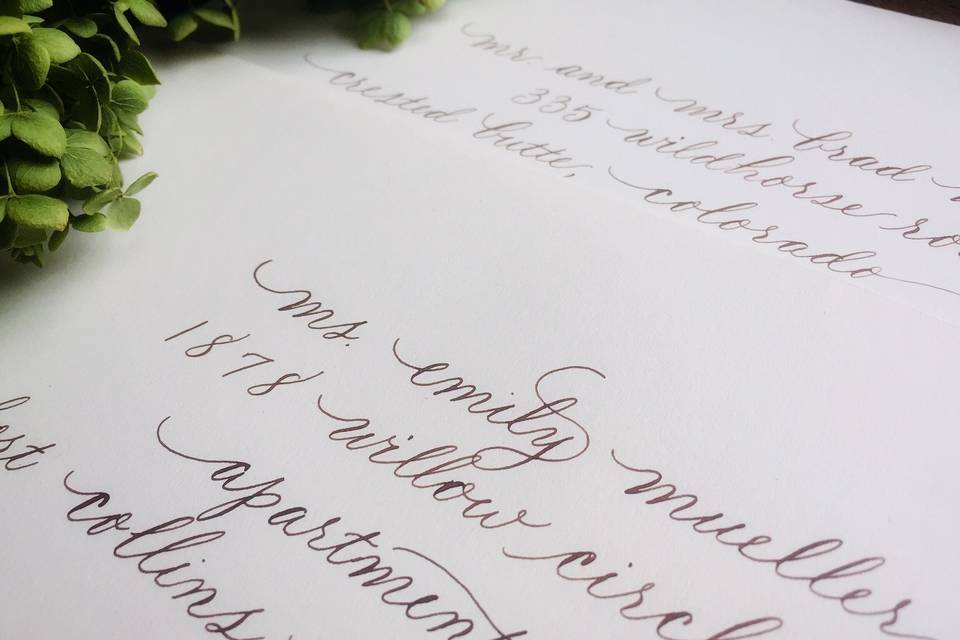 mr. and mrs. brad
335 wildhorse
crested butte, colorado
ms. emily mueller
1878 willow
apartment
collins